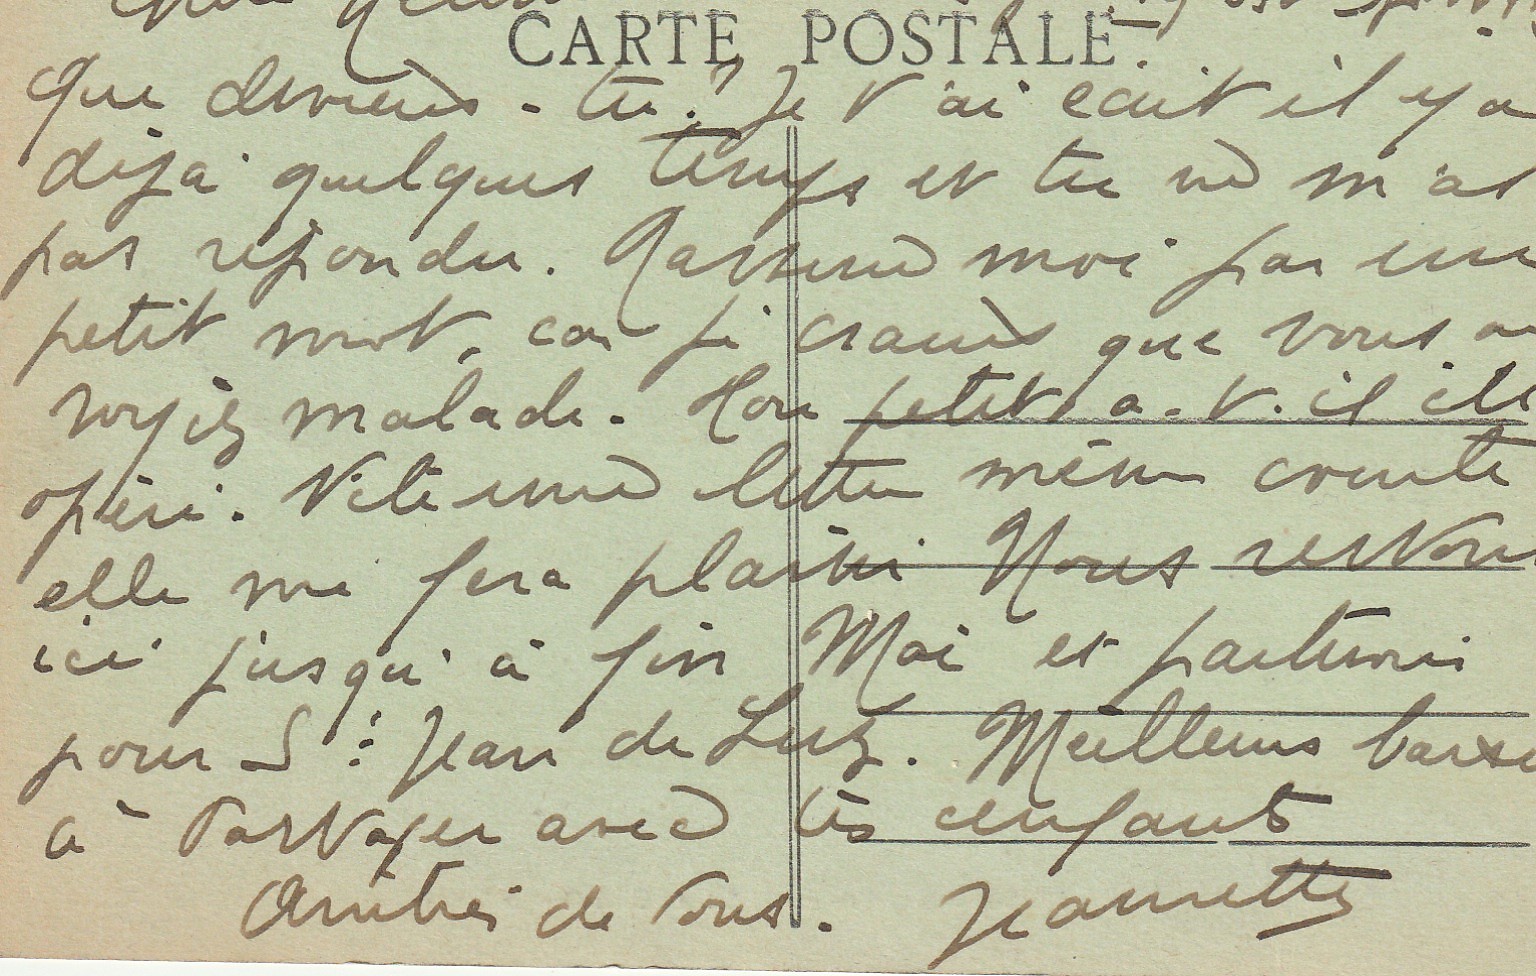 CARTE POSTALE
Que deviens-tu? Je t'ai écrit il y a
déjà quelques temps et tu ne m'as
pas répondu. Rassure moi par un
petit mot, car je crains que vous
soyiez malade. Ton petit a-t-il été
opéré. Vite une lettre même courte
elle me fera plaisir. Nous restons
ici jusqu'à fin Mai et partirons
pour St Jean de Luz. Meilleurs baisers
à partager avec les enfants
Amitiés de tous. Jeannette